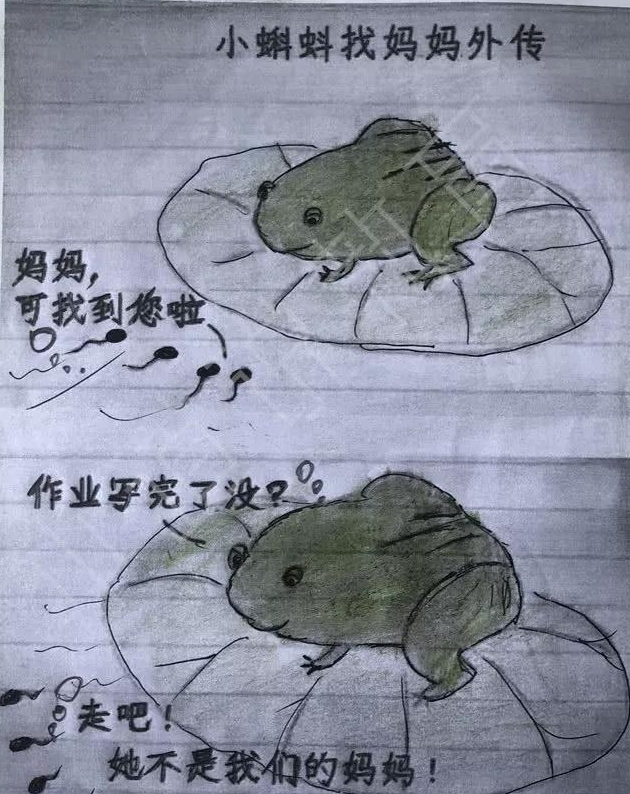 小蝌蚪找妈妈外传
妈妈,
可找到您啦
作业写完了没?
走吧!
她不是我们的妈妈!